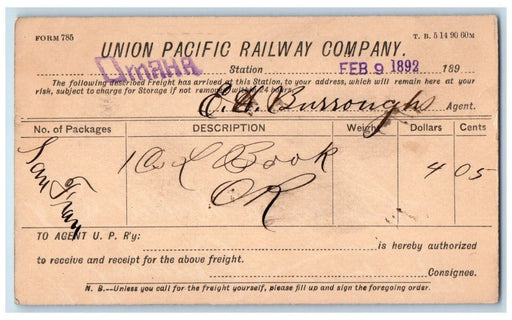 FORM 785 T. B. 5 14 90 60M
UNION PACIFIC RAILWAY COMPANY.
Omaha Station FEB 9 1892 189
The following described Freight has arrived at this Station, to your address, which will remain here at your
risk, subject to charge for Storage if not removed within 24 hours.
Burroughs Agent.
No. of Packages DESCRIPTION Weight Dollars Cents
San Fran 1 Book 4 05
OR
TO AGENT U. P. R'y:
is hereby authorized
to receive and receipt for the above freight.
Consignee.
N. B.—Unless you call for the freight yourself, please fill up and sign the foregoing order.